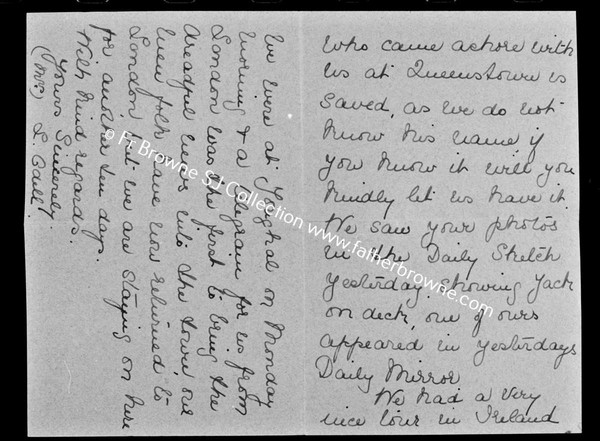 who came ashore with
us at Queenstown is
saved, as we do not
know his name if
you know it will you
kindly let us have it.
We saw your photos
in the Daily Sketch
yesterday showing Jack
on deck, one of ours
appeared in yesterdays
Daily Mirror
We had a very
nice tour in Ireland
We were at Youghal on Monday
morning & a telegram for us from
London was the first to bring the
dreadful news into the town, our
London but we are staying on here
for another few days.
With kind regards.
Yours Sincerely.
(Mrs) L.
© Fr Browne SJ Collection www.fatherbrowne.com